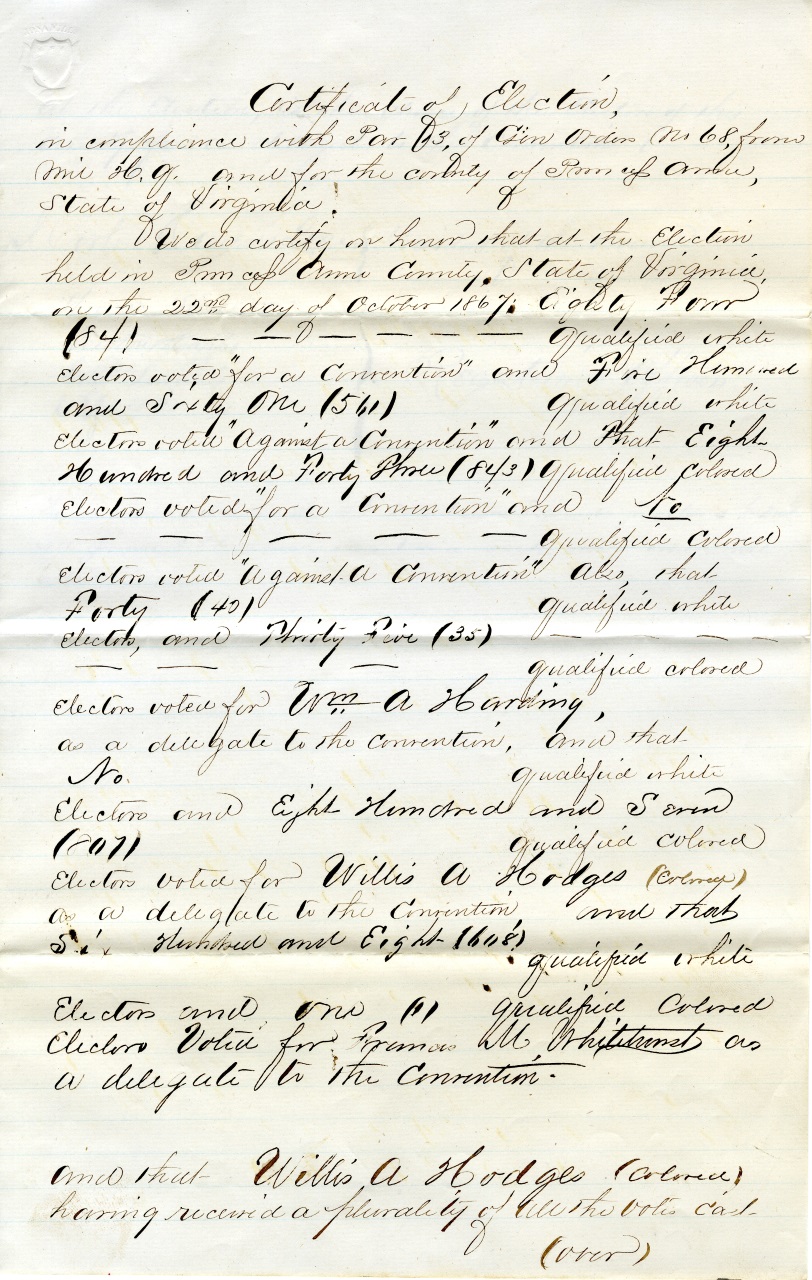 Certificate of Election,
in compliance with Par 13, of Gen Orders No 68, from
Mil H. Q. and for the county of Princess Anne,
State of Virginia.
We do certify on honor that at the Election
held in Princess Anne County, State of Virginia,
on the 22nd day of October 1867: Eighty Four
(84) — — — — — — qualified white
Electors voted "for a Convention" and Five Hundred
and Sixty One (561) qualified white
Electors voted "Against a Convention" and That Eight
Hundred and Forty Three (843) qualified colored
Electors voted "for a Convention" and No
— — — — — qualified colored
Electors voted "Against A Convention" Also, that
Forty (40) qualified white
Electors, and Thirty Five (35) — — — —
— — — qualified colored
Electors voted for Wm A Harding,
as a delegate to the convention, and that
No. qualified white
Electors and Eight Hundred and Seven
(807) qualified colored
Electors voted for Willis A Hodges (colored)
as a delegate to the Convention, and that
Six Hundred and Eight (608)
qualified white
Electors and one (1) qualified Colored
Electors Voted for Francis M Whitehurst as
a delegate to the Convention.
and that Willis A Hodges (colored)
having received a plurality of all the votes cast
(over)